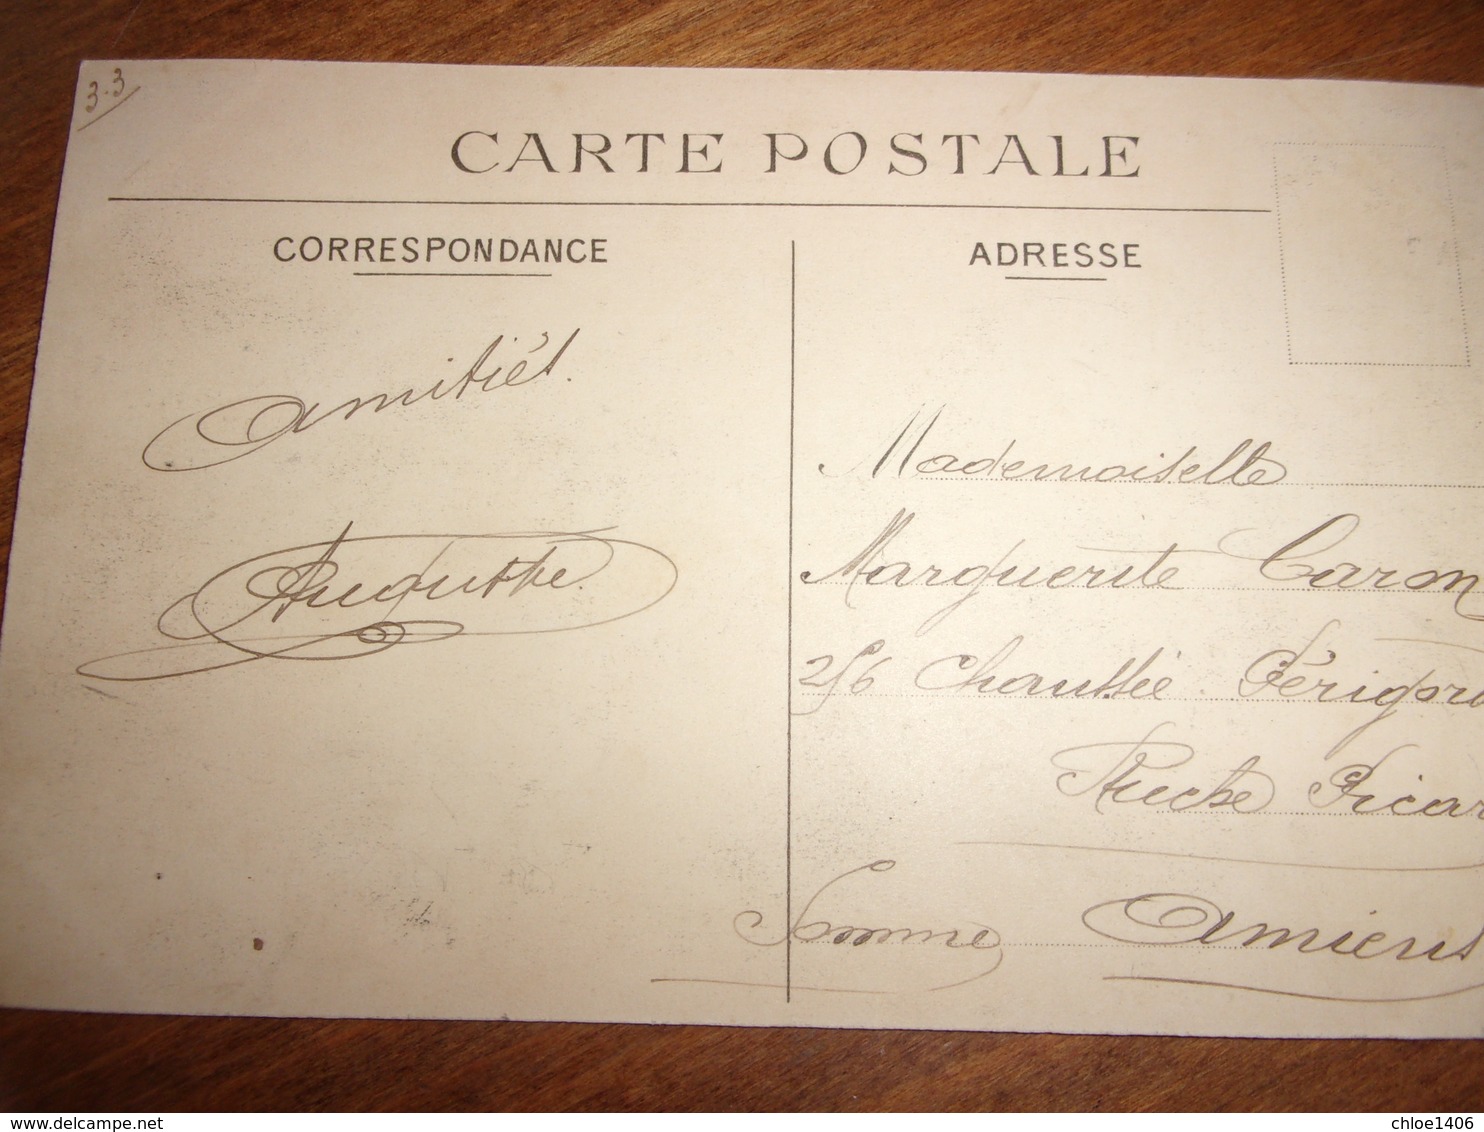 3.3
CARTE POSTALE
CORRESPONDANCE
ADRESSE
Amitiés.
Mademoiselle
Marguerite Caron
256 Chaussée Périgord
Ruche Picar
Somme Amiens
delcampe.net
chloe1406